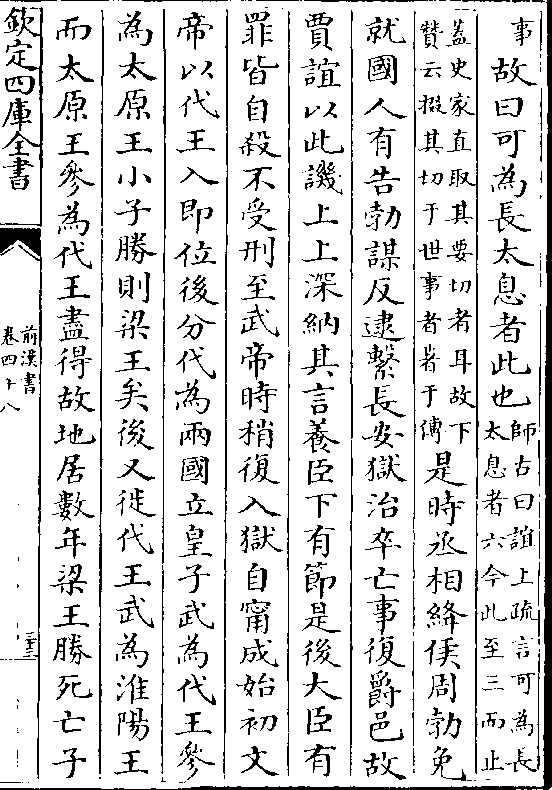 事故曰可為長太息者此也師古曰誼上疏言可為長太息者六今此至三而止
蓋史家直取其要切者耳故下贊云掇其切于世事者著于傳是時丞相絳侯周勃免
就國人有告勃謀反逮繫長安獄治卒亡事復爵邑故
賈誼以此譏上上深納其言養臣下有節是後大臣有
罪皆自殺不受刑至武帝時稍復入獄自甯成始初文
帝以代王入即位後分代為兩國立皇子武為代王參
為太原王小子勝則梁王矣後又徙代王武為淮陽王
而太原王參為代王盡得故地居數年梁王勝死亡子
欽定四庫全書
前漢書
卷四十八
三十三